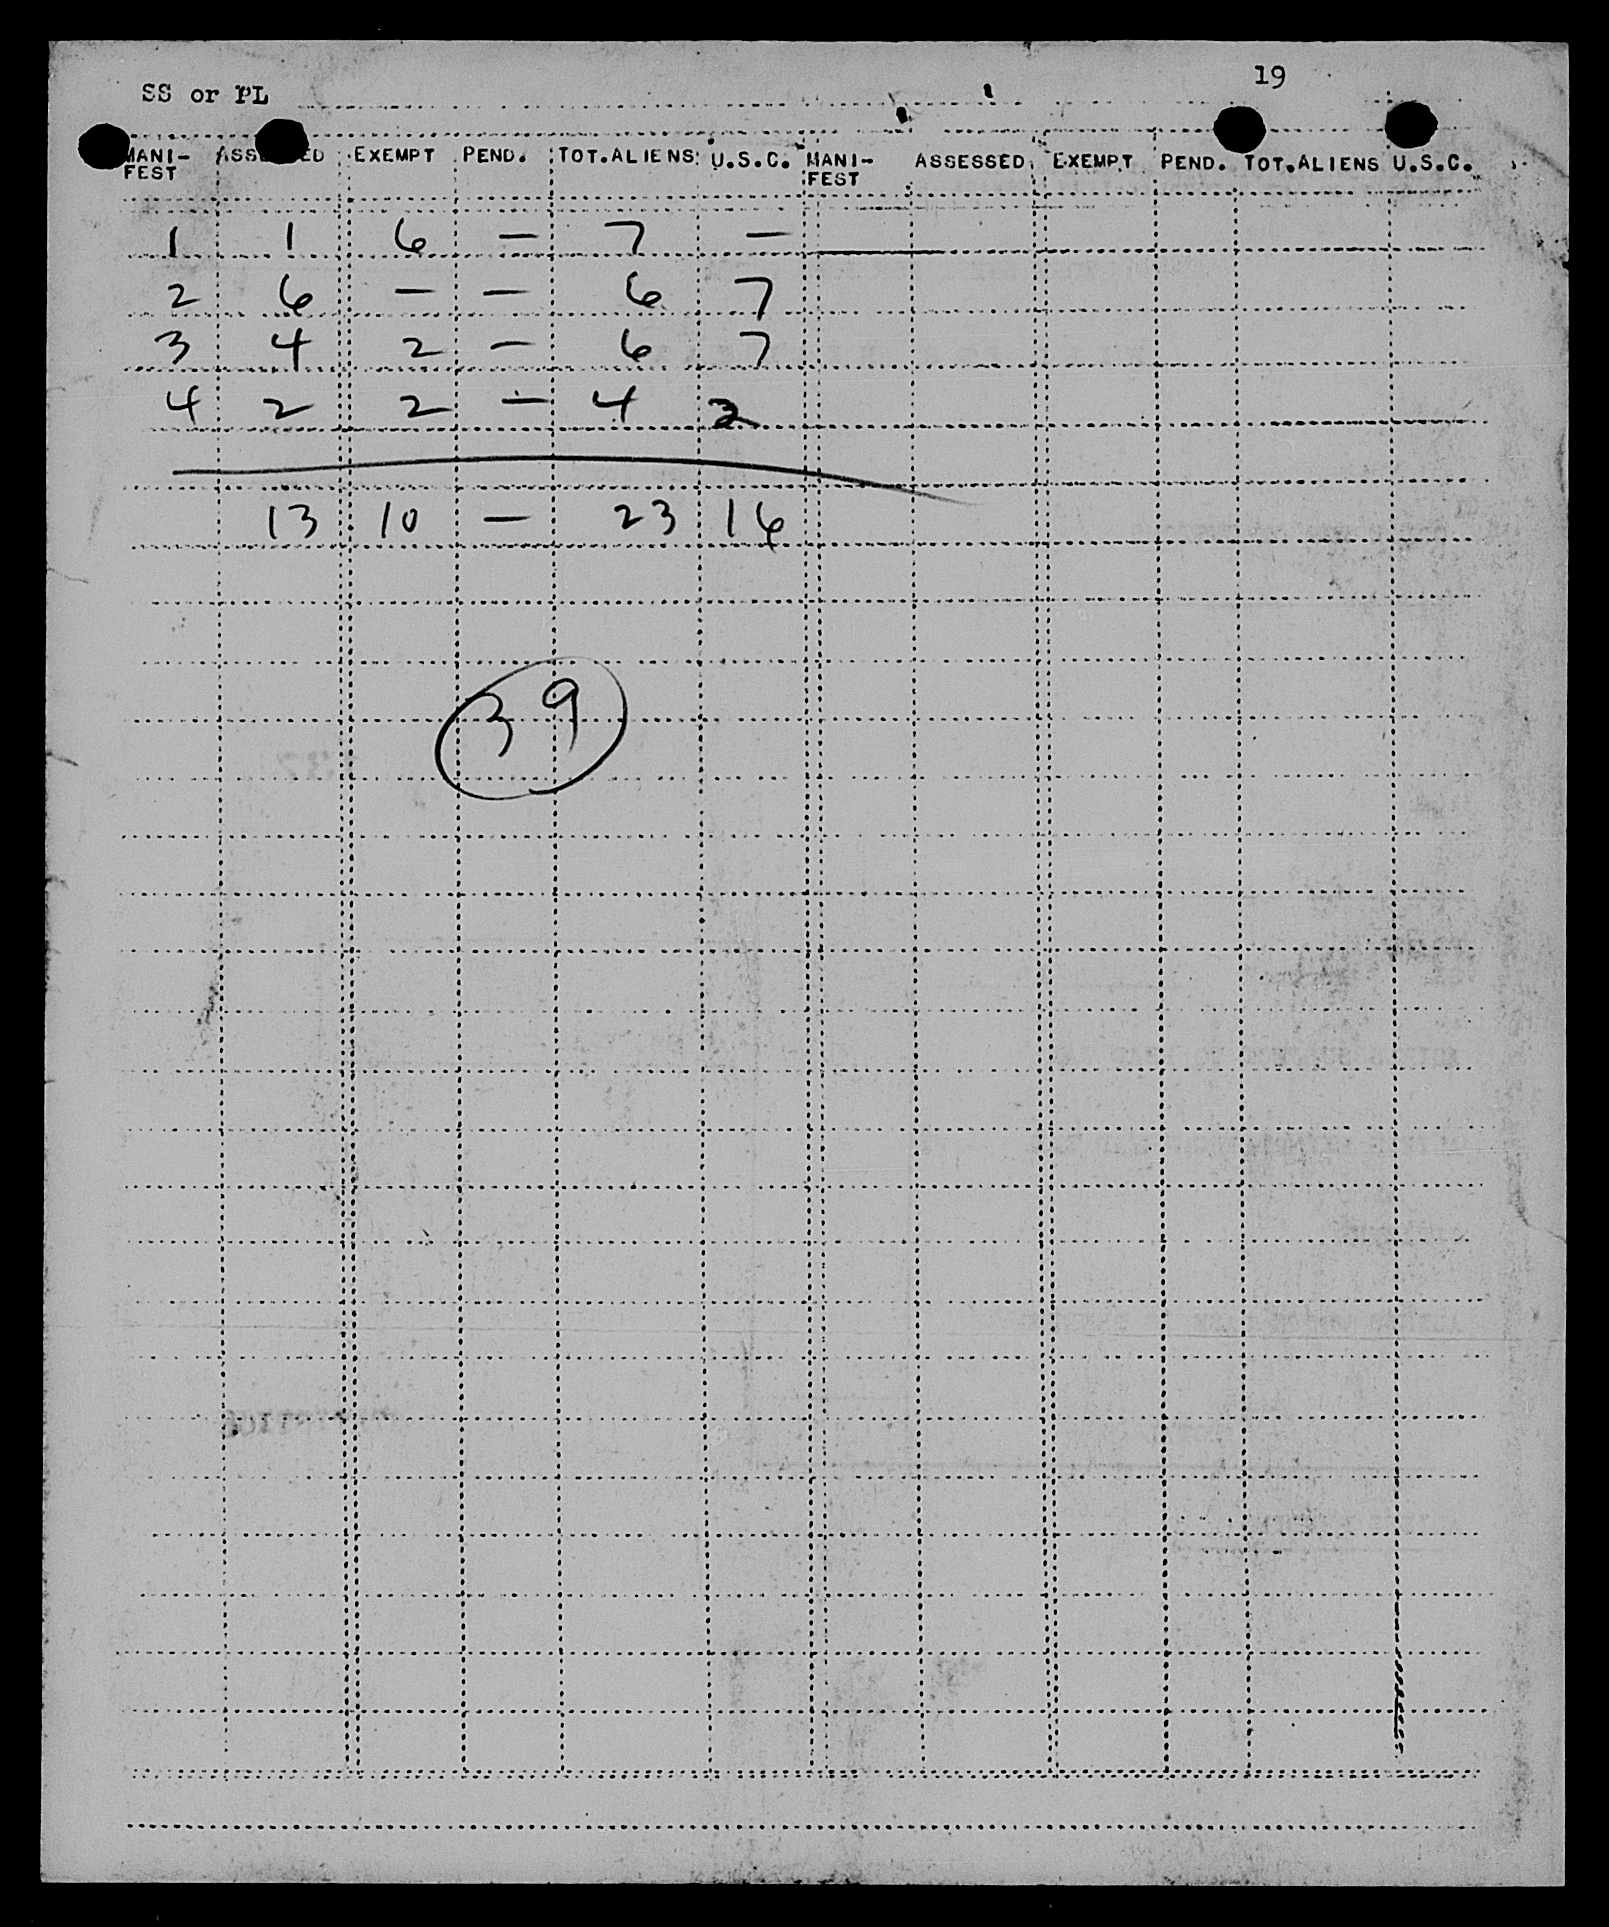 SS or PL 19
MANI-FEST ASSESSED EXEMPT PEND. TOT.ALIENS U.S.C. MANI-FEST ASSESSED EXEMPT PEND. TOT.ALIENS U.S.C.
1 1 6 — 7 —
2 6 — — 6 7
3 4 2 — 6 7
4 2 2 — 4 2
13 10 — 23 16
39